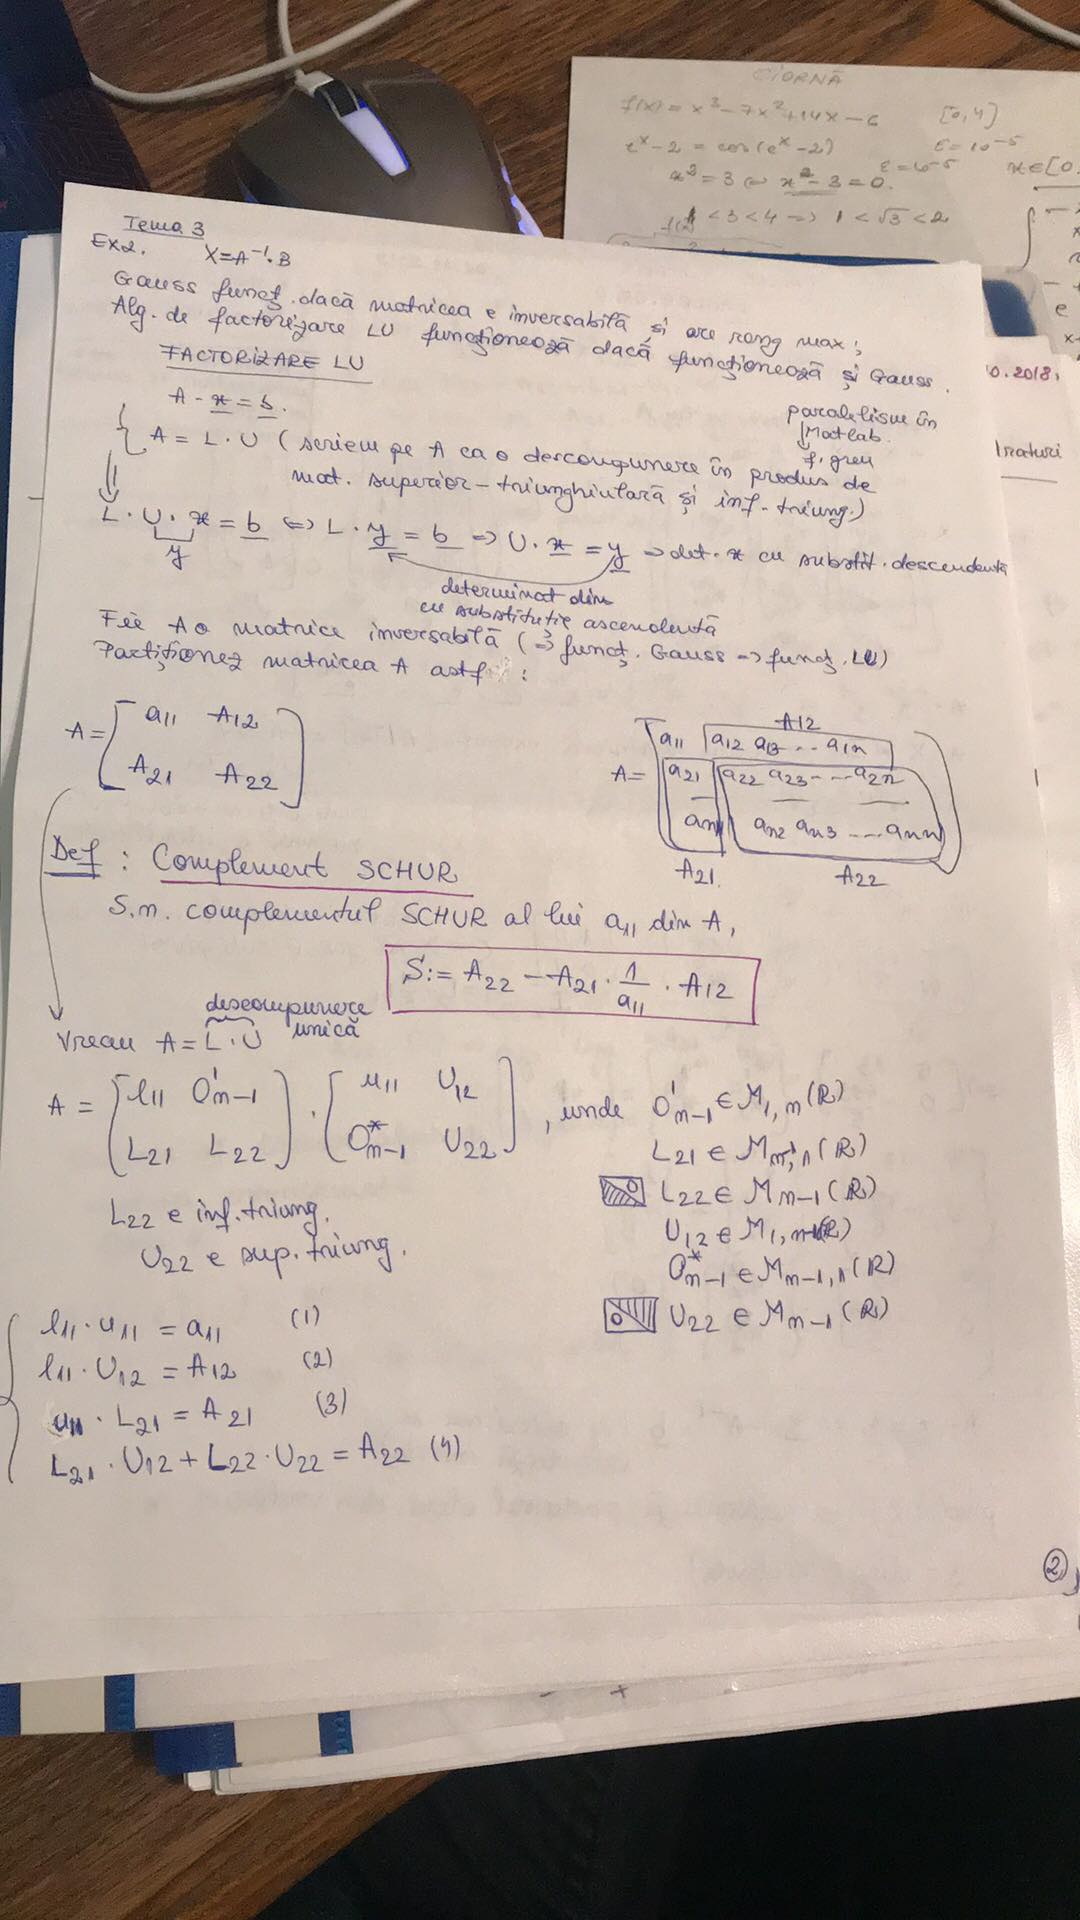 CIORNĂ
f(x) = x³ - 7x² + 14x - 6 [0,4]
eˣ - 2 = cos(eˣ - 2) ε = 10⁻⁵
x² = 3 ⇔ x² - 3 = 0. ε = 10⁻⁵ x ∈ [0,
1 < 3 < 4 ⇒ 1 < √3 < 2
Tema 3
Ex2. X = A⁻¹·B
Gauss funcț. dacă matricea e inversabilă și are rang max;
Alg. de factorizare LU funcționează dacă funcționează și Gauss.
FACTORIZARE LU
10.2018,
A·x = b.
paralelism în
Matlab.
f. greu
A = L·U (scriem pe A ca o descompunere în produs de
mat. superior-triunghiulară și inf-triung.)
L·U·x = b ⇔ L·y = b ⇒ U·x = y ⇒ det. x cu substit. descendentă
y
determinat din
cu substituție ascendentă
Fie A o matrice inversabilă (⇒ funcț. Gauss ⇒ funcț. LU)
Partiționez matricea A astf :
A = [a₁₁ A₁₂
A₂₁ A₂₂]
A₁₂
A = [a₁₁ a₁₂ a₁₃ ... a₁ₙ
a₂₁ a₂₂ a₂₃ ... a₂ₙ
aₙ₁ aₙ₂ aₙ₃ ... aₙₙ]
A₂₁. A₂₂
Def : Complement SCHUR
S.n. complementul SCHUR al lui a₁₁ din A,
S := A₂₂ - A₂₁ · 1/a₁₁ · A₁₂
descompunere
unică
Vreau A = L·U
A = [l₁₁ O'ₙ₋₁
L₂₁ L₂₂] · [u₁₁ U₁₂
O*ₙ₋₁ U₂₂], unde O'ₙ₋₁ ∈ M₁,ₙ(ℝ)
L₂₂ ∈ Mₙ₋₁(ℝ)
L₂₂ e inf. triung.
U₂₂ e sup. triung.
O*ₙ₋₁ ∈ Mₙ₋₁,₁(ℝ)
U₂₂ ∈ Mₙ₋₁(ℝ)
l₁₁·u₁₁ = a₁₁ (1)
l₁₁·U₁₂ = A₁₂ (2)
u₁₁·L₂₁ = A₂₁ (3)
L₂₁·U₁₂ + L₂₂·U₂₂ = A₂₂ (4)
2